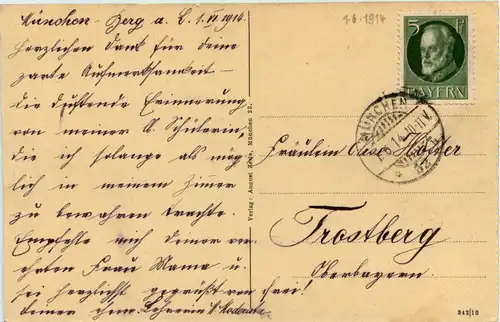 München-Berg a. L. 1. VI. 1914.
Herzlichen Dank für deine
zarte Aufmerksamkeit –
die duftende Erinnerung
von meiner l. Schülerin,
die ich solange als mög-
lich in meinem Zimmer
zu bewahren trachte.
Empfehle mich deiner ver-
ehrten Frau Mama u.
sei herzlichst gegrüßt von
deiner ehm. Lehrerin
1.6.1914
5 Pf
BAYERN
MÜNCHEN
Fräulein
Trostberg
Oberbayern.
frei!
Verlag: August Zerle, München 23.
342/10